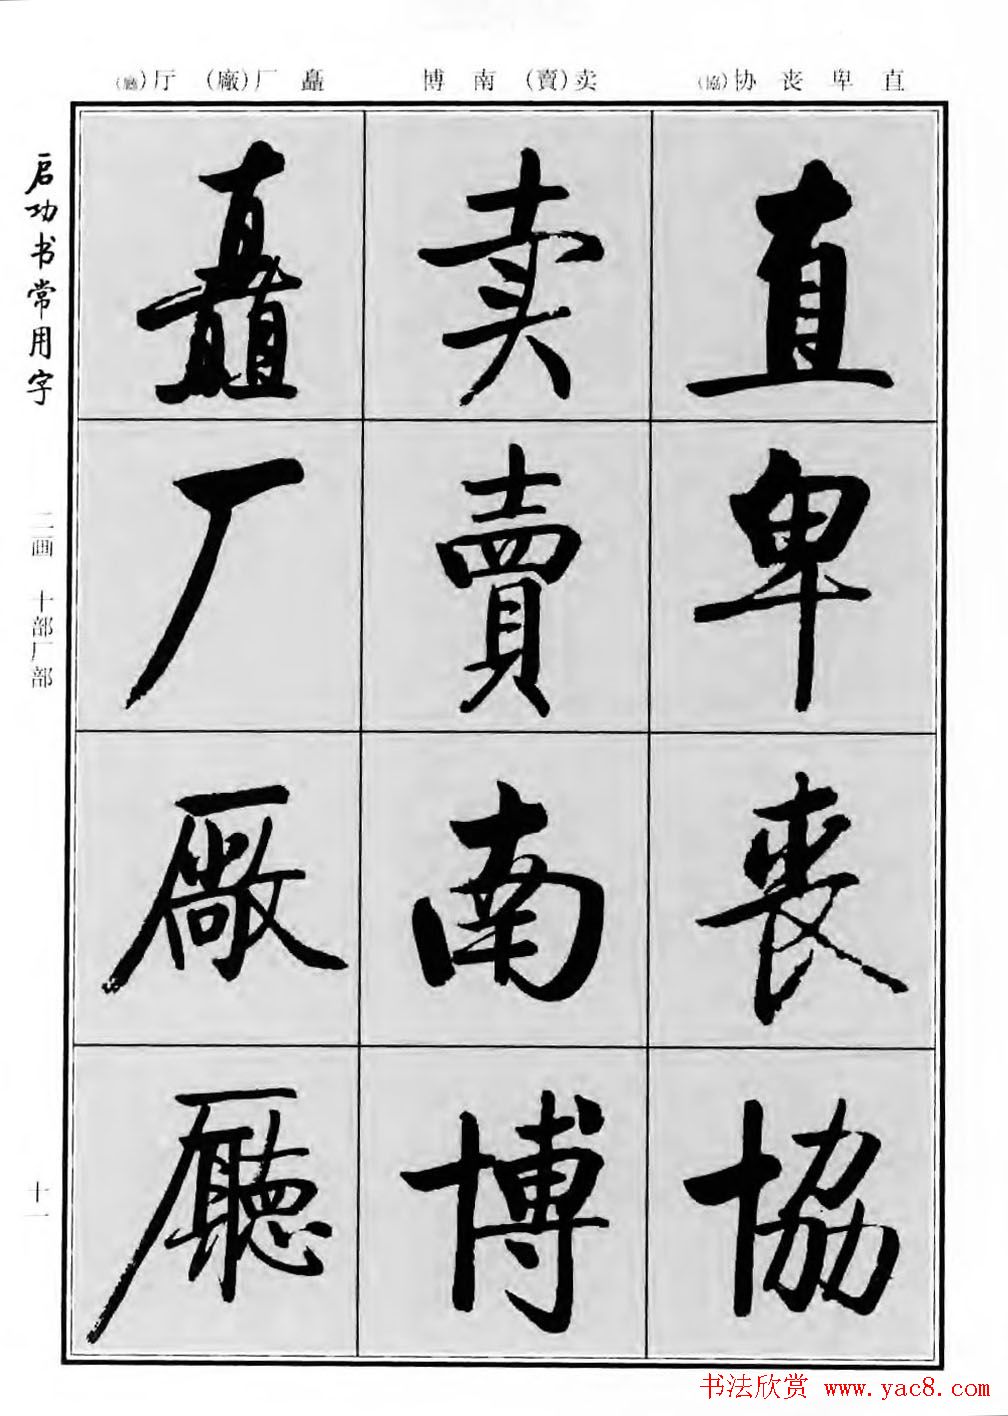 直 卑 丧 协(協)
卖(賣) 南 博
矗 厂(廠) 厅(廳)
直
卑
喪
協
卖
賣
南
博
矗
厂
廠
廳
启功书常用字
二画 十部厂部
十一
书法欣赏 www.yac8.com